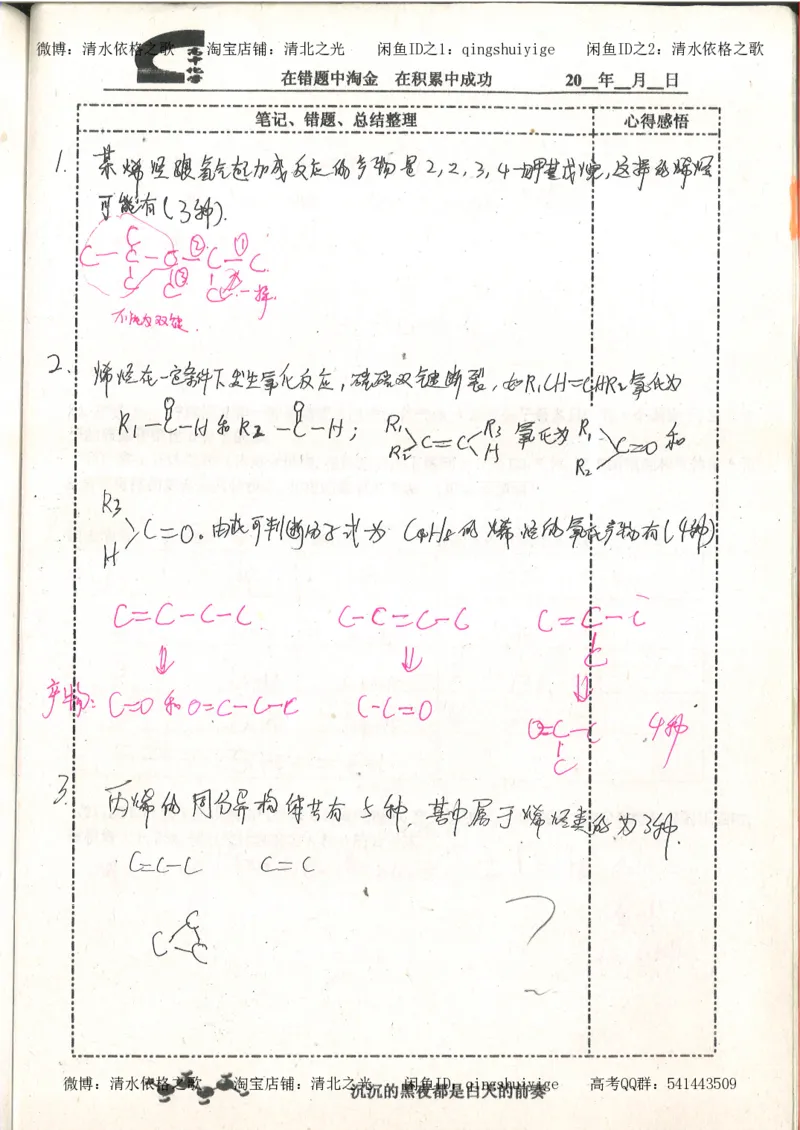 微博：清水依格之歌 淘宝店铺：清北之光 闲鱼ID之1：qingshuiyige 闲鱼ID之2：清水依格之歌
高中化学
在错题中淘金 在积累中成功 20__年__月__日
笔记、错题、总结整理 心得感悟
1. 某烯烃跟氢气起加成反应的产物是2,2,3,4-四甲基戊烷,这样的烯烃
可能有(3种).
C
C-C-C-②C-①C
C C③ C 一样.
不能为双键
2. 烯烃在一定条件下发生氧化反应,碳碳双键断裂,如R₁CH=CHR₂氧化为
R₁-C-H和R₂-C-H; R₁ R₂>C=C<R₃ H 氧化为 R₁ R₂>C=O和
R₃
H>C=O.由此可判断分子式为C₄H₈的烯烃的氧化产物有(4种)
C=C-C-C C-C=C-C C=C-C
C
产物: C=O和O=C-C-C C-C=O
O=C-C 4种
C
3. 丙烯的同分异构体共有5种,其中属于烯烃类的为3种.
C=C-C C=C
C
C-C
?
微博：清水依格之歌 淘宝店铺：清北之光 闲鱼ID：qingshuiyige 高考QQ群：541443509
沉沉的黑夜都是白天的前奏